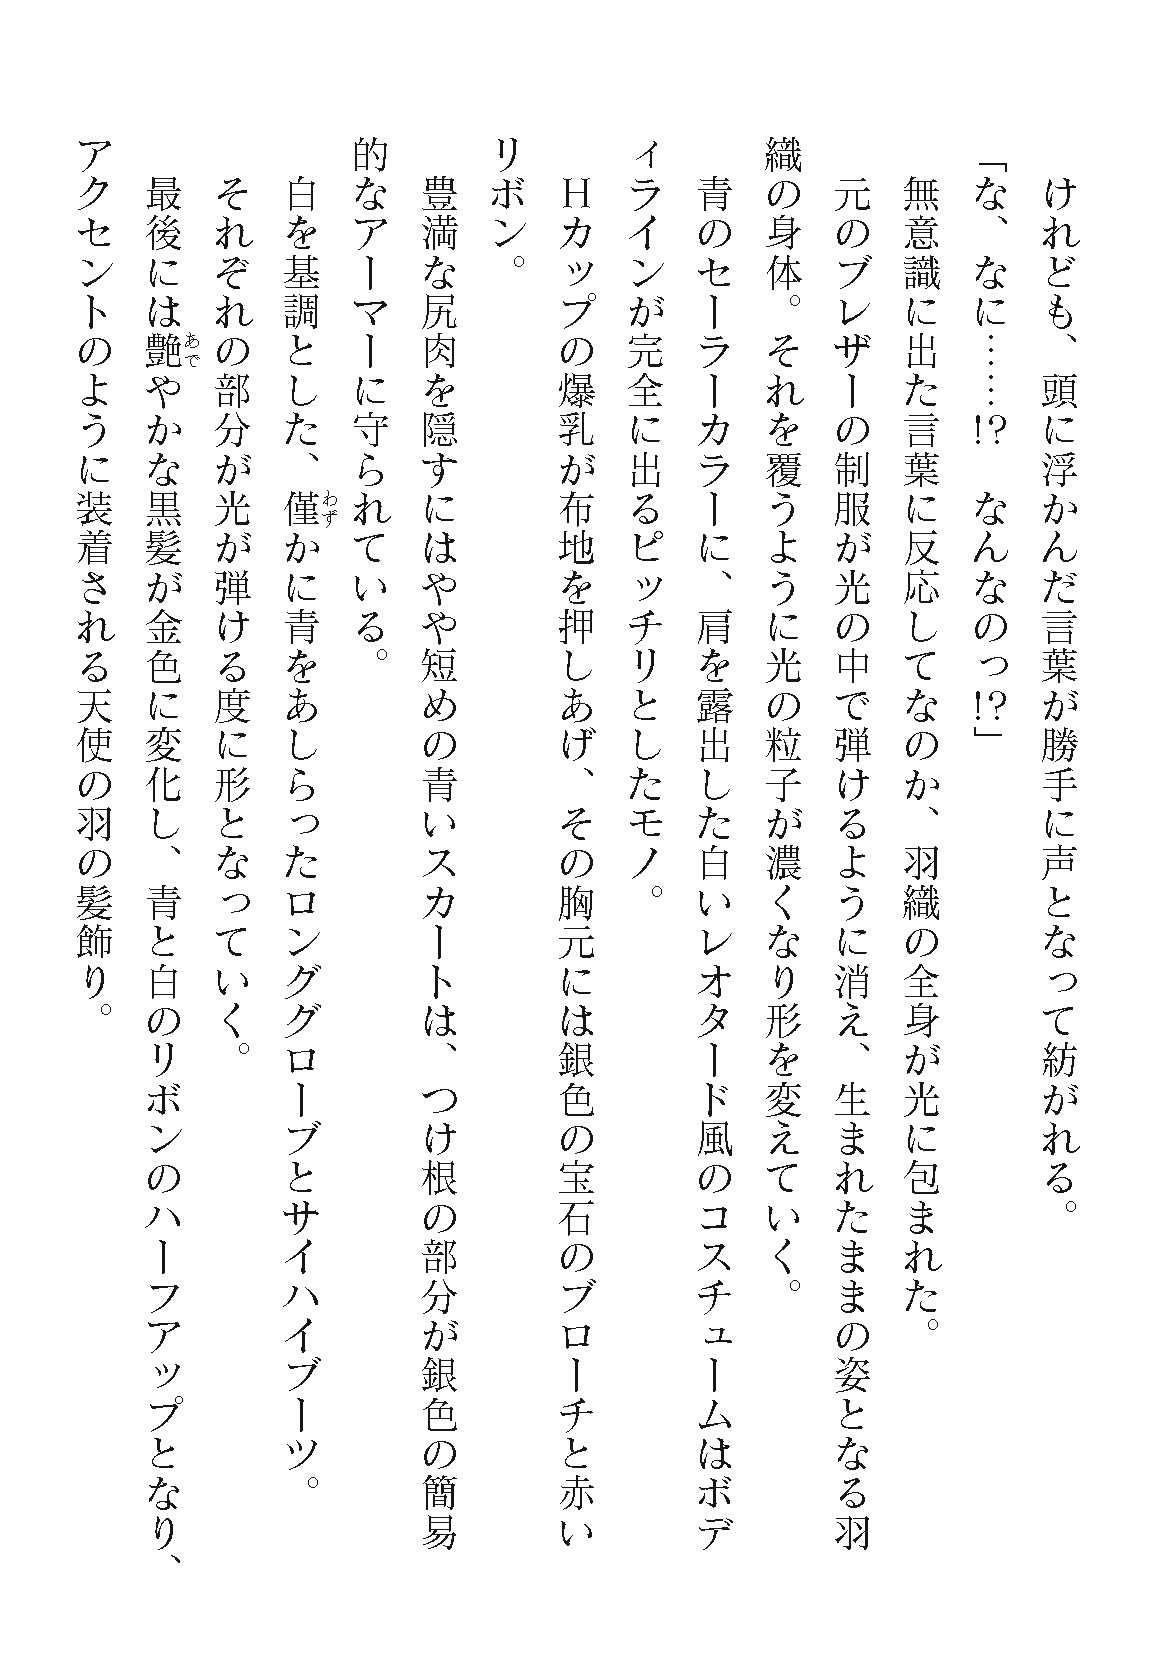 けれども、頭に浮かんだ言葉が勝手に声となって紡がれる。
「な、なに……!?　なんなのっ!?」
無意識に出た言葉に反応してなのか、羽織の全身が光に包まれた。
元のブレザーの制服が光の中で弾けるように消え、生まれたままの姿となる羽
織の身体。それを覆うように光の粒子が濃くなり形を変えていく。
青のセーラーカラーに、肩を露出した白いレオタード風のコスチュームはボデ
ィラインが完全に出るピッチリとしたモノ。
Hカップの爆乳が布地を押しあげ、その胸元には銀色の宝石のブローチと赤い
リボン。
豊満な尻肉を隠すにはやや短めの青いスカートは、つけ根の部分が銀色の簡易
的なアーマーに守られている。
白を基調とした、僅かに青をあしらったロンググローブとサイハイブーツ。
それぞれの部分が光が弾ける度に形となっていく。
最後には艶やかな黒髪が金色に変化し、青と白のリボンのハーフアップとなり、
アクセントのように装着される天使の羽の髪飾り。